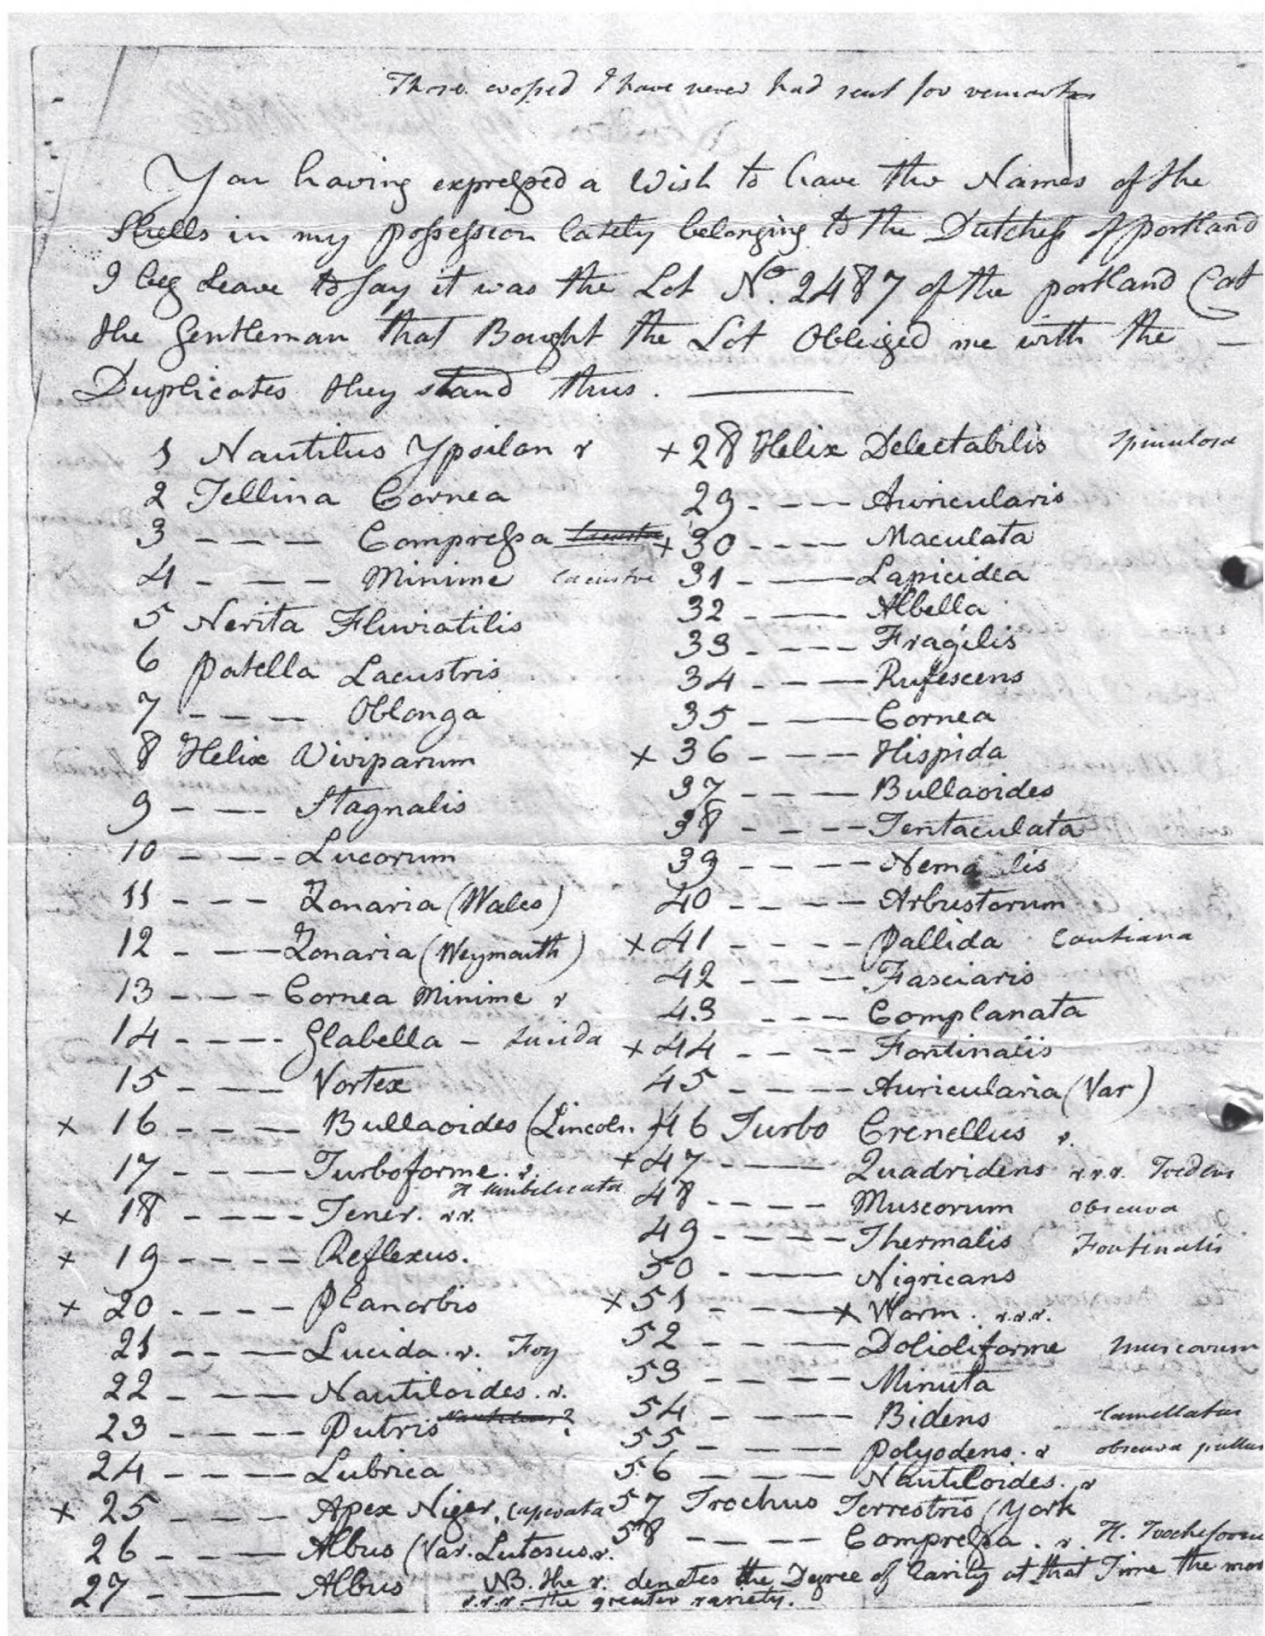 Those crossed I have never had sent for remarks
You having expressed a Wish to have the Names of the
Shells in my possession lately belonging to the Dutchess of portland
I beg Leave to say it was the Lot No. 2487 of the portland Cat
the Gentleman that Bought the Lot Obleiged me with the —
Duplicates they stand thus. ———
1 Nautilus Ypsilon r
2 Tellina Cornea
3 - - - Compressa
4 - - - Minime lacustre
5 Nerita Fluviatilis
6 patella Lacustris
7 - - - Oblonga
8 Helix Viviparum
9 - - - Stagnalis
10 - - - Lucorum
11 - - - Zonaria (Wales)
12 - - - Zonaria (Weymouth)
13 - - - Cornea Minime r
14 - - - Glabella - Lucida
15 - - - Vortex
x 16 - - - Bullaoides (Lincoln.
17 - - - Turboforme. r.
H umbilicata
x 18 - - - Tener. r.r.
x 19 - - - Reflexus.
x 20 - - - planorbis
21 - - - Lucida. r. Foy
22 - - - Nautiloides. r.
23 - - - Putris
24 - - - Lubrica
x 25 - - - Apex Niger.
26 - - - Albus (Var. Lutosus. r.
27 - - - Albus
x 28 Helix Delectabilis Spinulosa
29 - - - Auricularis
x 30 - - - Maculata
31 - - - Lapicidea
32 - - - Albella
33 - - - Fragilis
34 - - - Rufescens
35 - - - Cornea
x 36 - - - Hispida
37 - - - Bullaoides
38 - - - Tentaculata
39 - - - Nema lis
40 - - - Arbustorum
x 41 - - - pallida Cantiana
42 - - - Fasciaris
43 - - - Complanata
x 44 - - - Fontinalis
45 - - - Auricularia (Var)
46 Turbo Crenellus r.
x 47 - - - Quadridens r.r.r.
48 - - - Muscorum obscura
49 - - - Thermalis Fontinalis
50 - - - Nigricans
x 51 - - - x Warm. r.r.r.
52 - - - Dolioliforme muscorum
53 - - - Minuta
54 - - - Bidens lamellatus
55 - - - polyodens. r obscura pullus
56 - - - Nautiloides. r
57 Trochus Terrestris (York
58 - - - Compressa. r. H. Trocheforme
NB. the r. denotes the Degree of Rarity at that Time the mor
r.r.r. the greater rariety.